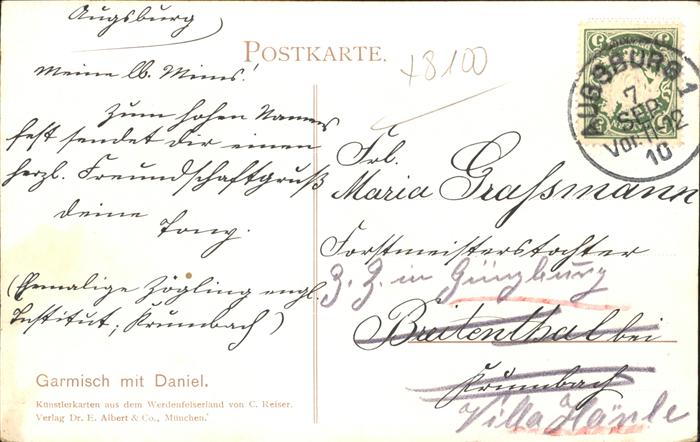 Augsburg
POSTKARTE.
+8100
meine lb. Mims!
Zum hohen Namens
fest sendet dir einen
herzl. Freundschaftsgruß
deine
Tony.
(Ehemalige Zögling engl.
Institut, Krumbach)
Garmisch mit Daniel.
Künstlerkarten aus dem Werdenfelserland von C. Reiser.
Verlag Dr. E. Albert & Co., München.
AUGSBURG 1
7
SEP.
Vor. 11-12
10
5
5
Frl.
Maria Graßmann
Forstmeisterstochter
z. Z. in Günzburg
Breitenthal bei
Krumbach
Villa Hänle